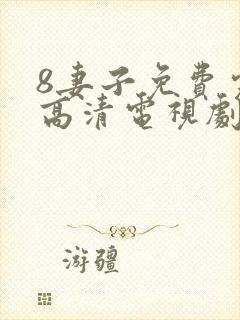 8妻子免費
高清電視劇
游疆